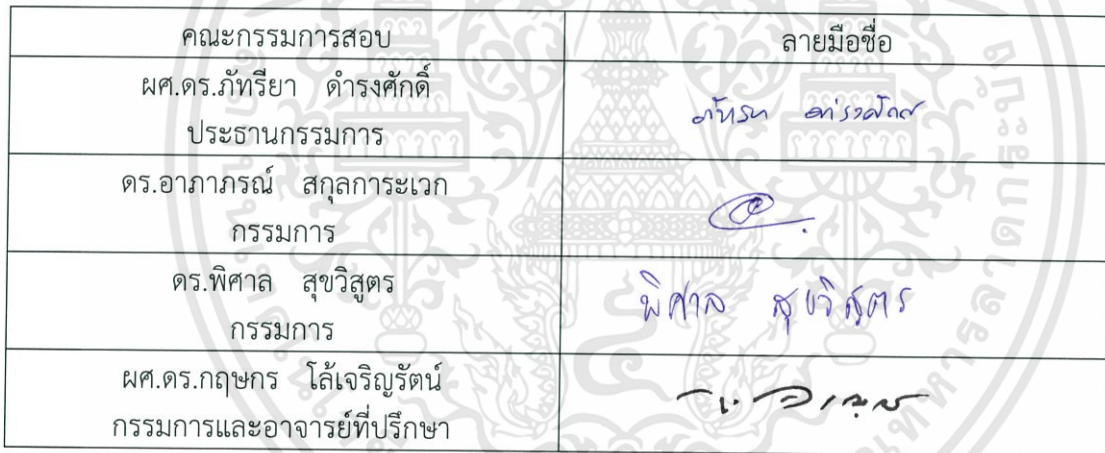 คณะกรรมการสอบ ลายมือชื่อ
ผศ.ดร.ภัทรียา ดำรงศักดิ์
ประธานกรรมการ
ดร.อาภาภรณ์ สกุลการะเวก
กรรมการ
ดร.พิศาล สุขวิสูตร พิศาล สุขวิสูตร
กรรมการ
ผศ.ดร.กฤษกร โล้เจริญรัตน์
กรรมการและอาจารย์ที่ปรึกษา